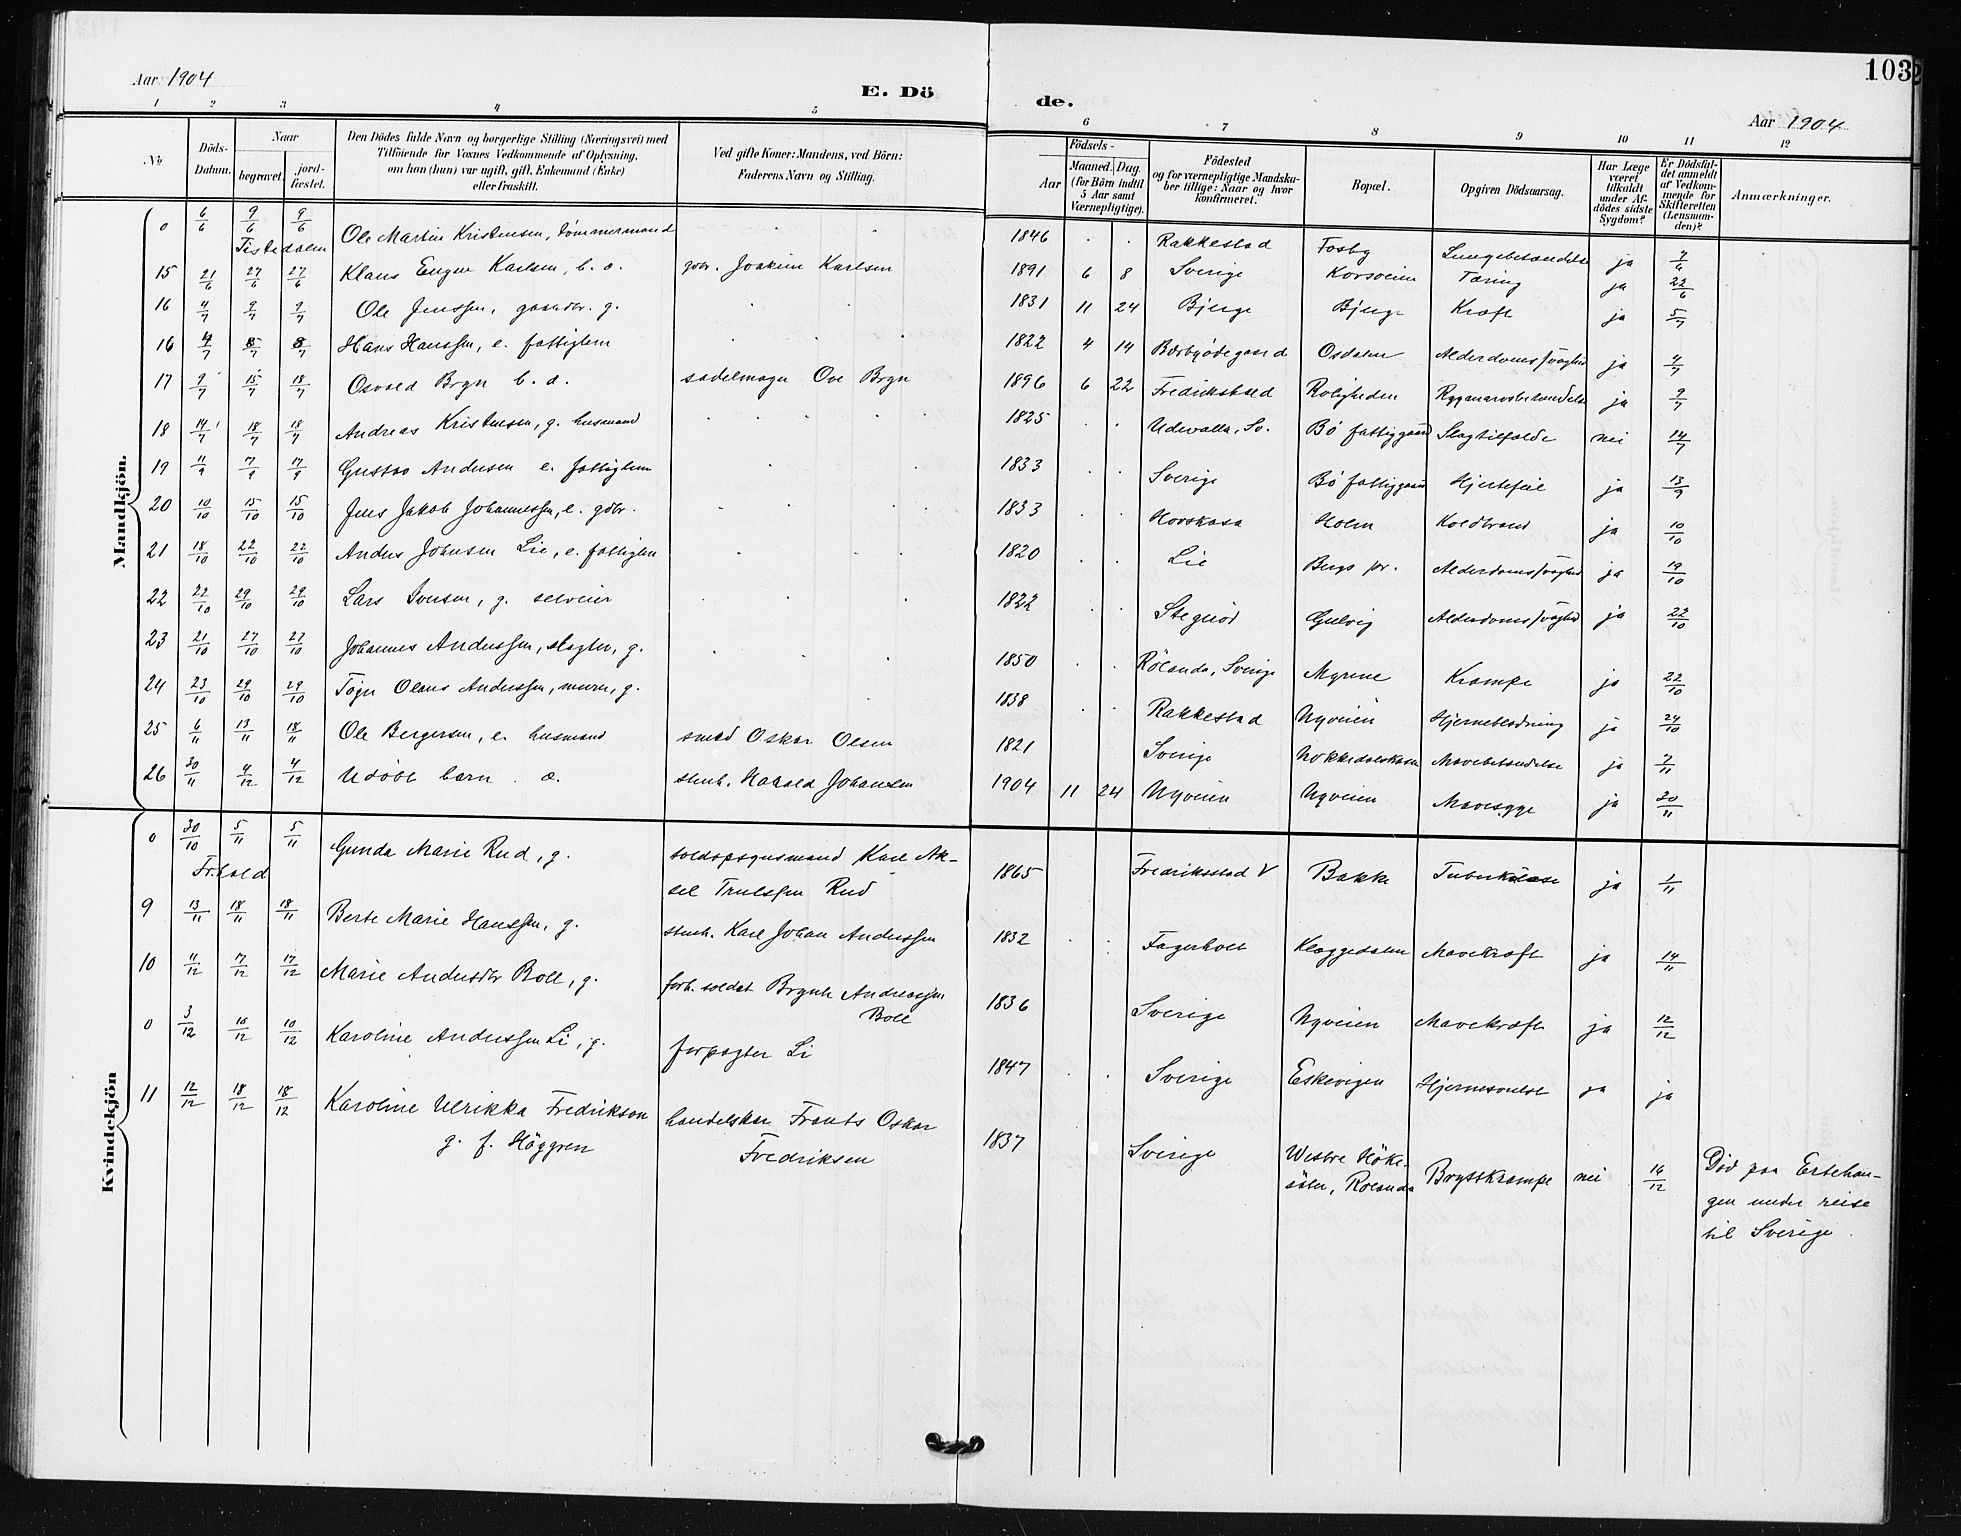 103
Aar 1904
E. Dö
de.
Aar 1904
1 2 3 4 5 6 7 8 9 10 11 12
No
Döds-
Datum.
Naar
begravet.
jord-
fæstet.
Den Dödes fulde Navn og borgerlige Stilling (Næringsvei) med
Tilföiende for Voxnes Vedkommende af Oplysning,
om han (hun) var ugift, gift, Enkemand (Enke)
eller fraskilt.
Ved gifte Koner: Mandens, ved Börn:
Faderens Navn og Stilling.
Födsels-
Aar
Maaned. Dag
(for Börn indtil
5 Aar samt
Værnepligtige).
Födested
og for værnepligtige Mandska-
ber tillige: Naar og hvor
konfirmeret.
Bopæl.
Opgiven Dödsaarsag.
Har Læge
været
tilkaldt
under Af-
dödes sidste
Sygdom?
Er Dödsfal-
det anmeldt
af Vedkom-
mende for
Skifteretten
(Lensman-
den)?
Anmærkninger.
Mandkjön.
0 6/6 9/6 9/6 Ole Martin Kristensen, tömmermand 1846 Rakkestad Fosby Lungebetændelse ja 7/6
Tistedalen
15 21/6 27/6 27/6 Klaus Eugen Karlsen, b. a. gbr. Joakim Karlsen 1891 6 8 Sverige Korsveien Tæring ja 22/6
16 4/7 9/7 9/7 Ole Jenssen, gaardbr. g. 1831 11 24 Bjerge Bjerge Kræft ja 5/7
16 4/7 8/7 8/7 Hans Hanssen, e. fattiglem 1822 4 14 Bærbyödegaard Osdalen Alderdomssvaghed ja 4/7
17 9/7 15/7 18/7 Osvald Bryn b. a. sadelmager Ove Bryn 1896 6 22 Fredrikshald Roligheden Rygmarvsbetændelse ja 9/7
18 14/7 18/7 18/7 Andreas Kristensen, g. husmand 1825 Udevalla, Sv. Bö fattiggaard Slagtilfælde nei 14/7
19 11/9 17/9 17/9 Gustav Andersen e. fattiglem 1833 Sverige Bö fattiggaard Hjertefeil ja 13/9
20 10/10 15/10 15/10 Jens Jakob Johannessen, e. gdbr. 1833 Holm Koldbrand ja 10/10
21 18/10 22/10 22/10 Anders Johnsen Lie, e. fattiglem 1820 Lie Bergs pr. Alderdomssvaghed ja 19/10
22 22/10 29/10 29/10 Lars Svensen, g. selveier 1822 Stegeröd Gulvig Alderdomssvaghed ja 22/10
23 21/10 27/10 27/10 Johannes Anderssen, slagter, g. 1850 Rölanda, Sverige Myrene Krampe ja 22/10
24 23/10 29/10 29/10 Olaus Anderssen, murer, g. 1838 Rakkestad Nyveien Hjerneblödning ja 24/10
25 6/11 13/11 18/11 Ole Bergersen, e. husmand smed Oskar Olsen 1821 Sverige Mavebetændelse ja 7/11
26 30/11 4/12 4/12 Udöbt barn. æ. stenh. Harald Johansen 1904 11 24 Nyveien Nyveien Mavesyge ja 30/11
Kvindekjön
0 30/10 5/11 5/11 Gunda Marie Rud, g. soldapagusmand Karl Ak-
Fr.hald sel Trulssen Rud 1865 Fredriksstad V Bakke Tuberkulose ja 1/11
9 13/11 18/11 18/11 Berte Marie Hanssen, g. stenh. Karl Johan Anderssen 1832 Fagerholt Kloggedalen Mavekræft ja 14/11
10 11/12 17/12 17/12 Marie Andersdtr Boll, g. forh. soldat Brynte Andreassen
Boll 1836 Sverige Nyveien Mavekræft ja 12/12
0 3/12 10/12 10/12 Karoline Anderssen Li, g. forpagter Li 1847 Sverige Eskevigen ja ja
11 12/12 18/12 18/12 Karoline Ulrikka Fredrikson handelskar Frants Oskar
g. f. Häggren Fredriksen 1837 Sverige Westre Höke-
säter, Rölanda Brystkrampe nei 14/12 Död paa Ertehau-
gen under reise
til Sverige.